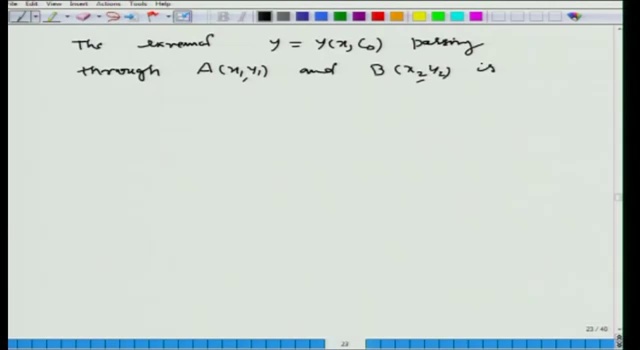 File Edit View Insert Actions Tools Help
The extremal y = y(x, c₀) passing
through A(x₁, y₁) and B(x₂, y₂) is
23 / 40
23